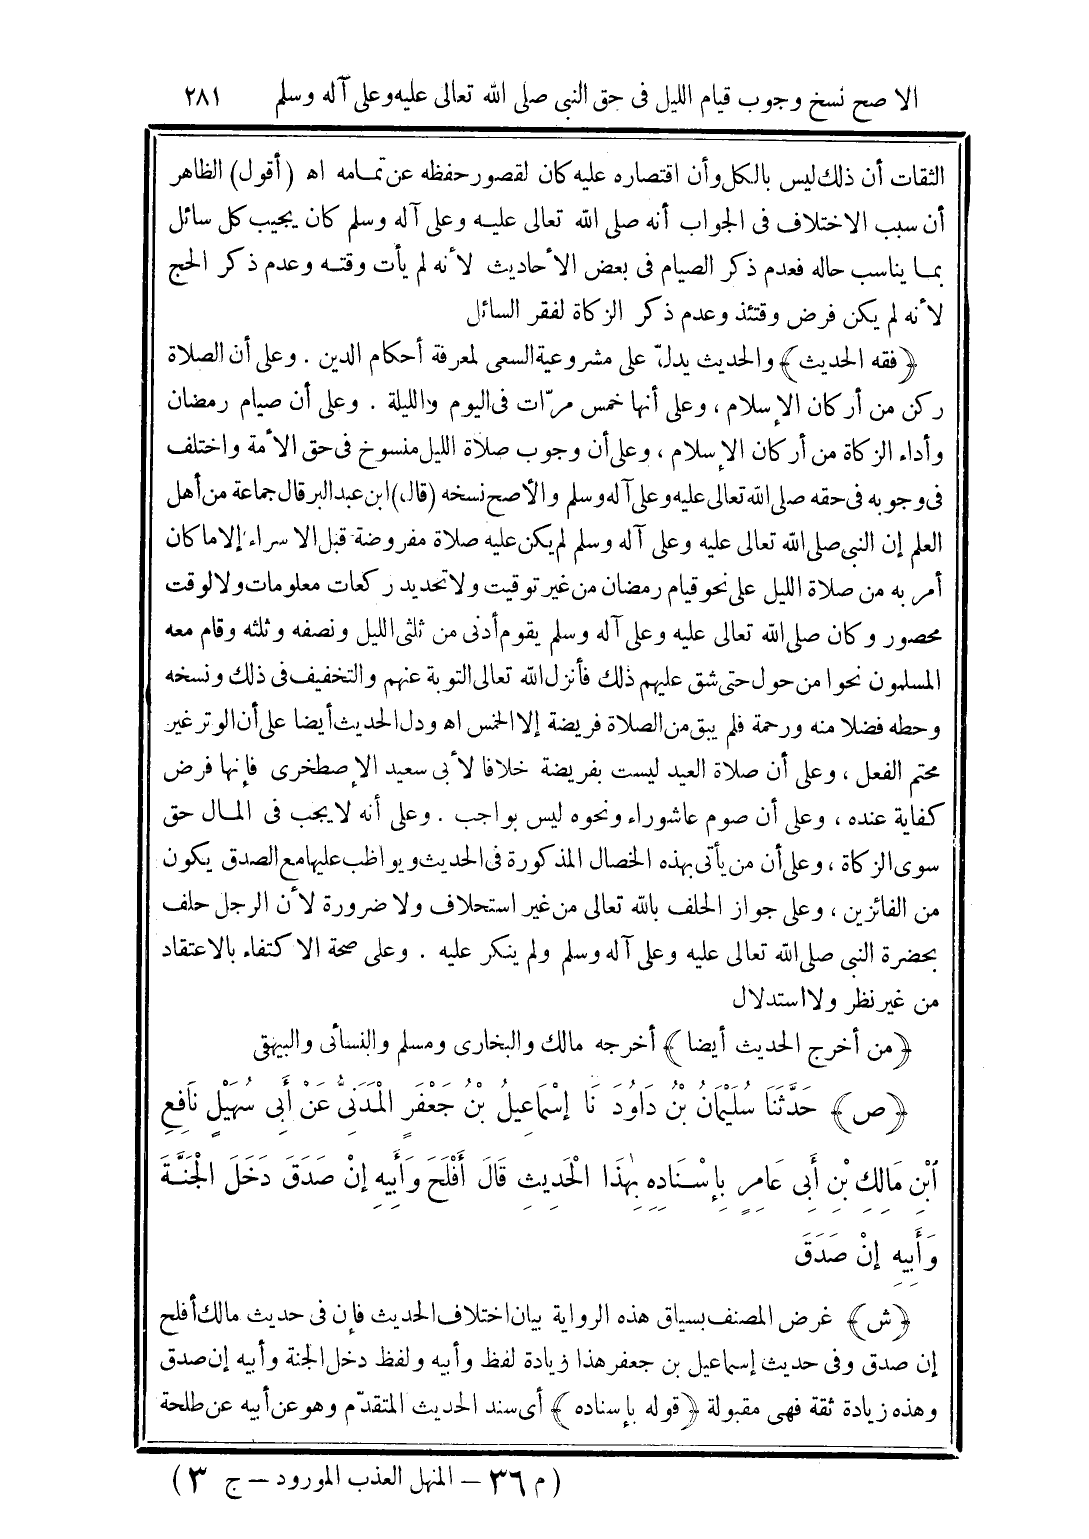 الاصح نسخ وجوب قيام الليل فى حق النبى صلى الله تعالى عليه وعلى آله وسلم ٢٨١
الثقات أن ذلك ليس بالكل وأن اقتصاره عليه كان لقصور حفظه عن تمامه اه (أقول) الظاهر
أن سبب الاختلاف فى الجواب أنه صلى الله تعالى عليه وعلى آله وسلم كان يجيب كل سائل
بما يناسب حاله فعدم ذكر الصيام فى بعض الأحاديث لأنه لم يأت وقته وعدم ذكر الحج
لأنه لم يكن فرض وقتئذ وعدم ذكر الزكاة لفقر السائل
﴿فقه الحديث﴾ والحديث يدلّ على مشروعية السعى لمعرفة أحكام الدين . وعلى أن الصلاة
ركن من أركان الإسلام ، وعلى أنها خمس مرّات فى اليوم والليلة . وعلى أن صيام رمضان
وأداء الزكاة من أركان الإسلام ، وعلى أن وجوب صلاة الليل منسوخ فى حق الأمة واختلف
فى وجوبه فى حقه صلى الله تعالى عليه وعلى آله وسلم والأصح نسخه (قال) ابن عبد البر قال جماعة من أهل
العلم إن النبى صلى الله تعالى عليه وعلى آله وسلم لم يكن عليه صلاة مفروضة قبل الاسراء إلا ما كان
أمر به من صلاة الليل على نحو قيام رمضان من غير توقيت ولا تحديد ركعات معلومات ولا لوقت
محصور وكان صلى الله تعالى عليه وعلى آله وسلم يقوم أدنى من ثلثى الليل ونصفه وثلثه وقام معه
المسلمون نحوا من حول حتى شق عليهم ذلك فأنزل الله تعالى التوبة عنهم والتخفيف فى ذلك ونسخه
وحطه فضلا منه ورحمة فلم يبق من الصلاة فريضة إلا الخمس اه ودل الحديث أيضا على أن الوتر غير
محتم الفعل ، وعلى أن صلاة العيد ليست بفريضة خلافا لأبى سعيد الإصطخرى فإنها فرض
كفاية عنده ، وعلى أن صوم عاشوراء ونحوه ليس بواجب . وعلى أنه لا يجب فى المال حق
سوى الزكاة ، وعلى أن من يأتى بهذه الخصال المذكورة فى الحديث ويواظب عليها مع الصدق يكون
من الفائزين ، وعلى جواز الحلف بالله تعالى من غير استحلاف ولا ضرورة لأن الرجل حلف
بحضرة النبى صلى الله تعالى عليه وعلى آله وسلم ولم ينكر عليه . وعلى صحة الاكتفاء بالاعتقاد
من غير نظر ولا استدلال
﴿من أخرج الحديث أيضا﴾ أخرجه مالك والبخارى ومسلم والنسائى والبيهقى
﴿ص﴾ حَدَّثَنَا سُلَيْمَانُ بْنُ دَاوُدَ نَا إِسْمَاعِيلُ بْنُ جَعْفَرٍ الْمَدَنِىُّ عَنْ أَبِى سُهَيْلٍ نَافِعِ
ابْنِ مَالِكِ بْنِ أَبِى عَامِرٍ بِإِسْنَادِهِ بِهٰذَا الْحَدِيثِ قَالَ أَفْلَحَ وَأَبِيهِ إِنْ صَدَقَ دَخَلَ الْجَنَّةَ
وَأَبِيهِ إِنْ صَدَقَ
﴿ش﴾ غرض المصنف بسياق هذه الرواية بيان اختلاف الحديث فإن فى حديث مالك أفلح
إن صدق وفى حديث إسماعيل بن جعفر هذا زيادة لفظ وأبيه ولفظ دخل الجنة وأبيه إن صدق
وهذه زيادة ثقة فهى مقبولة ﴿قوله بإسناده﴾ أى سند الحديث المتقدّم وهو عن أبيه عن طلحة
(م ٣٦ – المنهل العذب المورود – ج ٣)